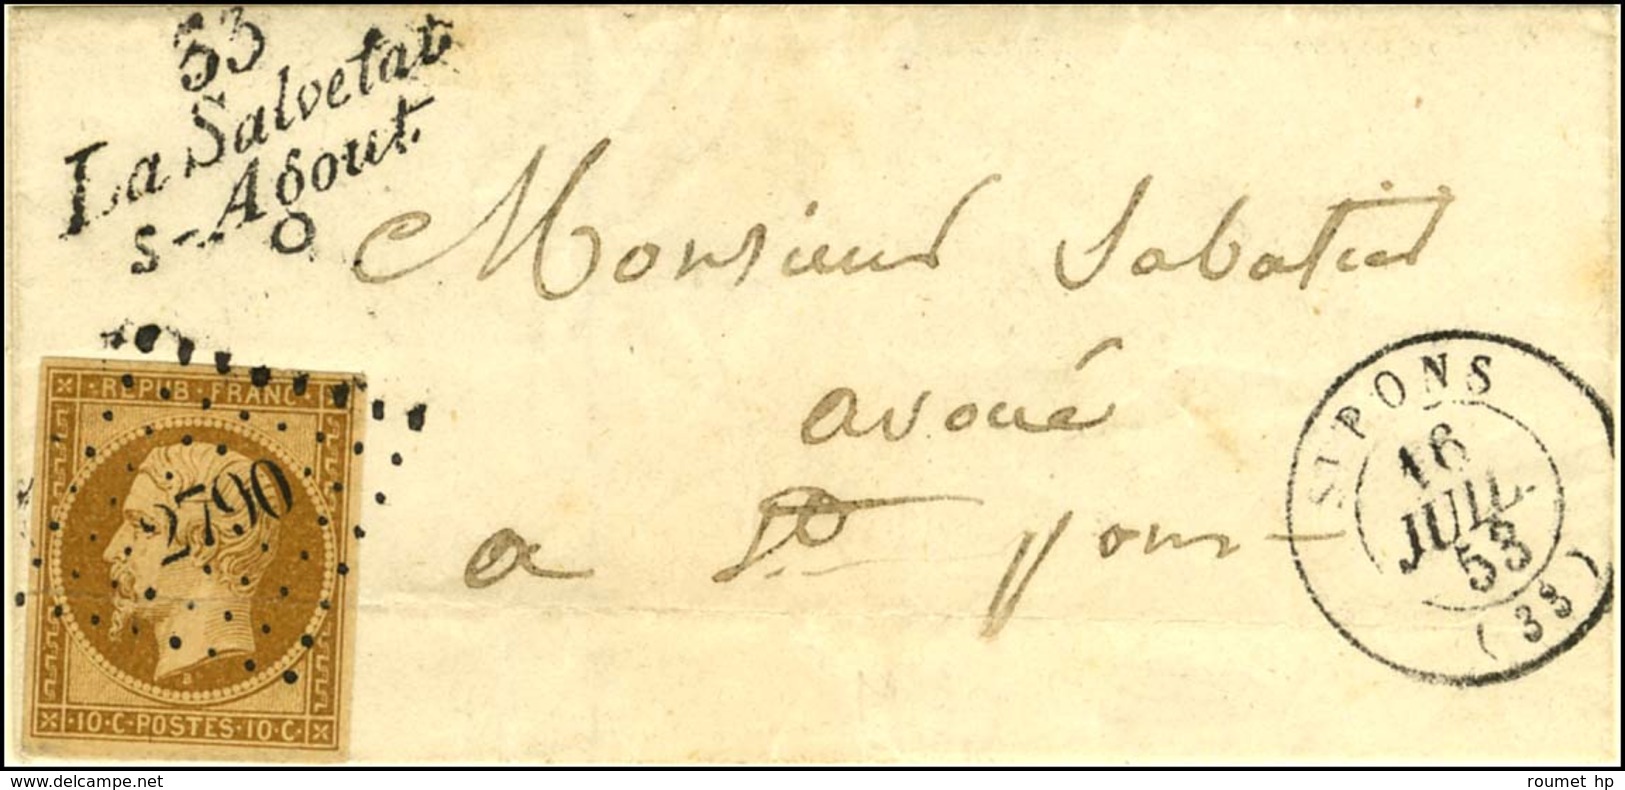 33
La Salvetat
S-Agout.
O
Monsieur Sabatier
avoué
a St pons
REPUB·FRANC·
2790
B
·10·C·POSTES·10·C·
ST PONS
16
JUIL.
53
(33)
roumet hp